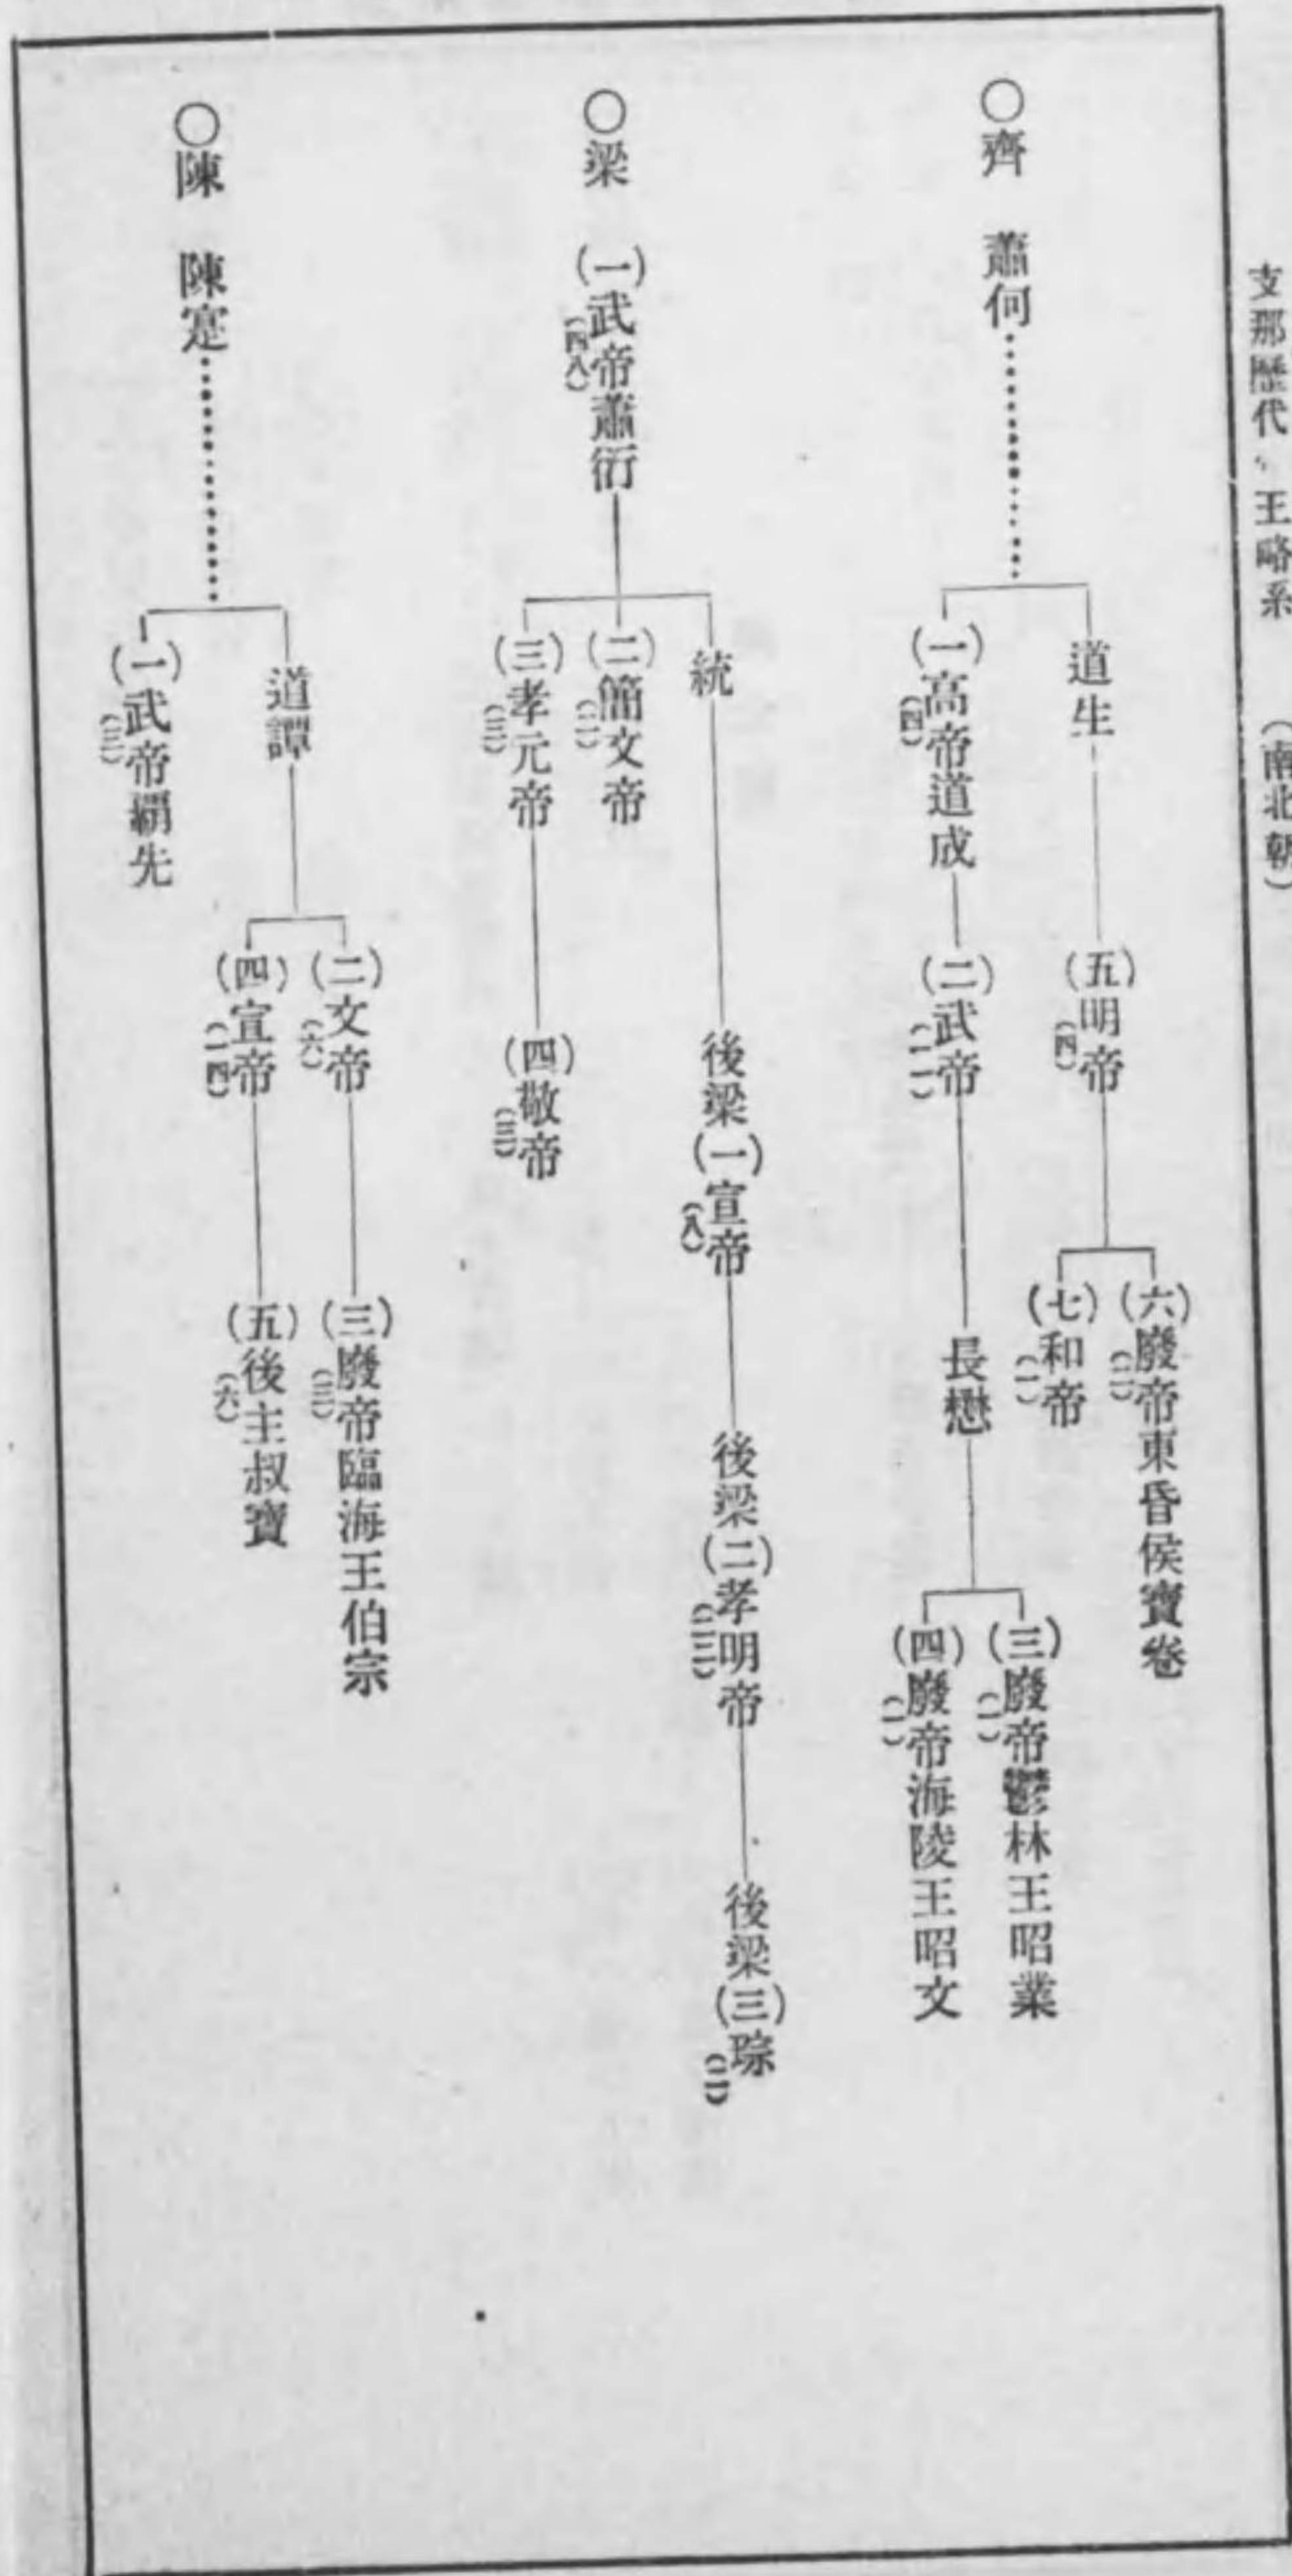 支那歷代 王略系 （南北朝）
○齊 蕭何
道生
（五）明帝（四）
（六）廢帝東昏侯寶卷（二）
（七）和帝（一）
（一）高帝道成（四）
（二）武帝（一一）
長懋
（三）廢帝鬱林王昭業（一）
（四）廢帝海陵王昭文（一）
○梁 （一）武帝蕭衍（四八）
統
後梁（一）宣帝（八）
後梁（二）孝明帝（二三）
後梁（三）琮（二）
（二）簡文帝（二）
（三）孝元帝（三）
（四）敬帝（三）
○陳 陳寔
道譚
（二）文帝（六）
（三）廢帝臨海王伯宗（三）
（四）宣帝（一四）
（五）後主叔寶（六）
（一）武帝覇先（三）